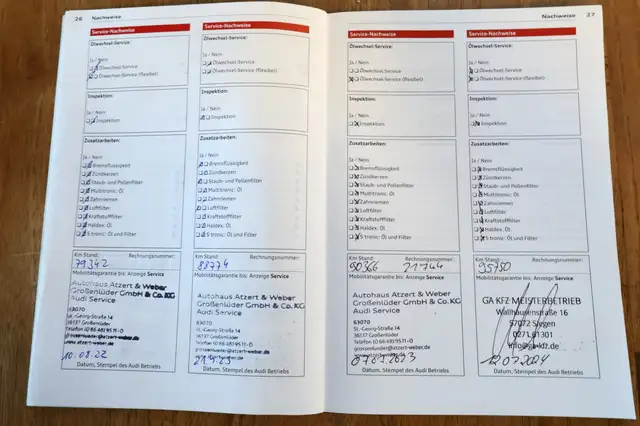 26 Nachweise
Service-Nachweise
Ölwechsel-Service:
Ja / Nein
Ölwechsel-Service
Ölwechsel-Service (flexibel)
Inspektion:
Ja / Nein
Inspektion
Zusatzarbeiten:
Ja / Nein
Bremsflüssigkeit
Zündkerzen
Staub- und Pollenfilter
Multitronic: Öl
Zahnriemen
Luftfilter
Kraftstofffilter
Haldex: Öl
S tronic: Öl und Filter
Km Stand: Rechnungsnummer:
79342
Mobilitätsgarantie bis: Anzeige Service
Autohaus Atzert & Weber
Großenlüder GmbH & Co. KG
Audi Service
63070
St.-Georg-Straße 14
36137 Großenlüder
Telefon (0 66 48) 95 11-0
grossenlueder@atzert-weber.de
www.atzert-weber.de
10.08.22
Datum, Stempel des Audi Betriebs
Service-Nachweise
Ölwechsel-Service:
Ja / Nein
Ölwechsel-Service
Ölwechsel-Service (flexibel)
Inspektion:
Ja / Nein
Inspektion
Zusatzarbeiten:
Ja / Nein
Bremsflüssigkeit
Zündkerzen
Staub- und Pollenfilter
Multitronic: Öl
Zahnriemen
Luftfilter
Kraftstofffilter
Haldex: Öl
S tronic: Öl und Filter
Km Stand: Rechnungsnummer:
88774
Mobilitätsgarantie bis: Anzeige Service
Autohaus Atzert & Weber
Großenlüder GmbH & Co. KG
Audi Service
63070
St.-Georg-Straße 14
36137 Großenlüder
Telefon (0 66 48) 95 11-0
grossenlueder@atzert-weber.de
www.atzert-weber.de
Datum, Stempel des Audi Betriebs
Nachweise 27
Service-Nachweise
Ölwechsel-Service:
Ja / Nein
Ölwechsel-Service
Ölwechsel-Service (flexibel)
Inspektion:
Ja / Nein
Inspektion
Zusatzarbeiten:
Ja / Nein
Bremsflüssigkeit
Zündkerzen
Staub- und Pollenfilter
Multitronic: Öl
Zahnriemen
Luftfilter
Kraftstofffilter
Haldex: Öl
S tronic: Öl und Filter
Km Stand: Rechnungsnummer:
90366 21744
Mobilitätsgarantie bis: Anzeige Service
Autohaus Atzert & Weber
Großenlüder GmbH & Co. KG
Audi Service
63070
St.-Georg-Straße 14
36137 Großenlüder
Telefon (0 66 48) 95 11-0
grossenlueder@atzert-weber.de
Datum, Stempel des Audi Betriebs
Service-Nachweise
Ölwechsel-Service:
Ja / Nein
Ölwechsel-Service
Ölwechsel-Service (flexibel)
Inspektion:
Ja / Nein
Inspektion
Zusatzarbeiten:
Ja / Nein
Bremsflüssigkeit
Zündkerzen
Staub- und Pollenfilter
Multitronic: Öl
Zahnriemen
Luftfilter
Kraftstofffilter
Haldex: Öl
S tronic: Öl und Filter
Km Stand: Rechnungsnummer:
95750
Mobilitätsgarantie bis: Anzeige Service
GA KFZ MEISTERBETRIEB
Wallhausenstraße 16
57072 Siegen
info@ga-kfz.de
12.07.2024
Datum, Stempel des Audi Betriebs